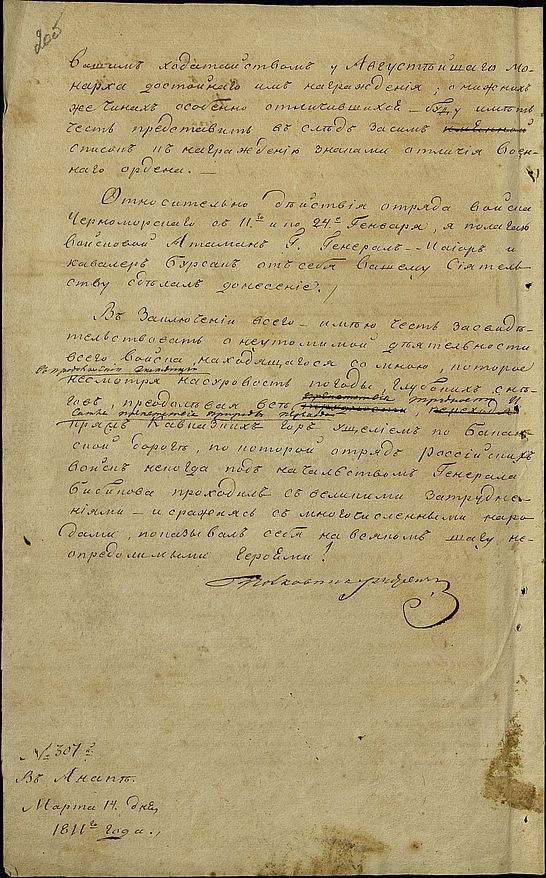 205
Вашимъ ходатайствомъ у Августѣйшаго Мо-
нарха достойнаго имъ награжденія; о нижнихъ
же чинахъ особенно отличившихся – буду имѣть
честь представить въ слѣдъ засимъ имянной
списокъ къ награжденію знаками отличія Воен-
наго ордена. —
Относительно дѣйствія отряда войска
Черноморскаго съ 11го и по 24е Генваря, я полагаю
войсковой Атаманъ Г. Генералъ-Маіоръ и
кавалеръ Бурсакъ отъ себя Вашему Сіятель-
ству сдѣлалъ донесеніе.
Въ Заключеніи всего – имѣю честь засвидѣ-
тельствовать о неутомимой дѣятельности
всего войска, находящагося со мною, которое
въ продолженіи экспедиціи
несмотря насуровость погоды, глубокихъ снѣ-
говъ, преодолѣвая всѣ
самыя препятствія природы
чрезъ Кавказскихъ горъ ущеліемъ по Бакан-
ской дорогѣ, по которой отрядъ Россійскихъ
войскъ некогда подъ начальствомъ Генерала
Бибикова проходилъ съ великими затрудне-
ніями – и сражаясь съ многочисленными наро-
дами, показывалъ себя на всякомъ шагу не-
опредолимыми героями!
№ 307й
Въ Анапѣ.
Марта 14. дня,
1811го Года.